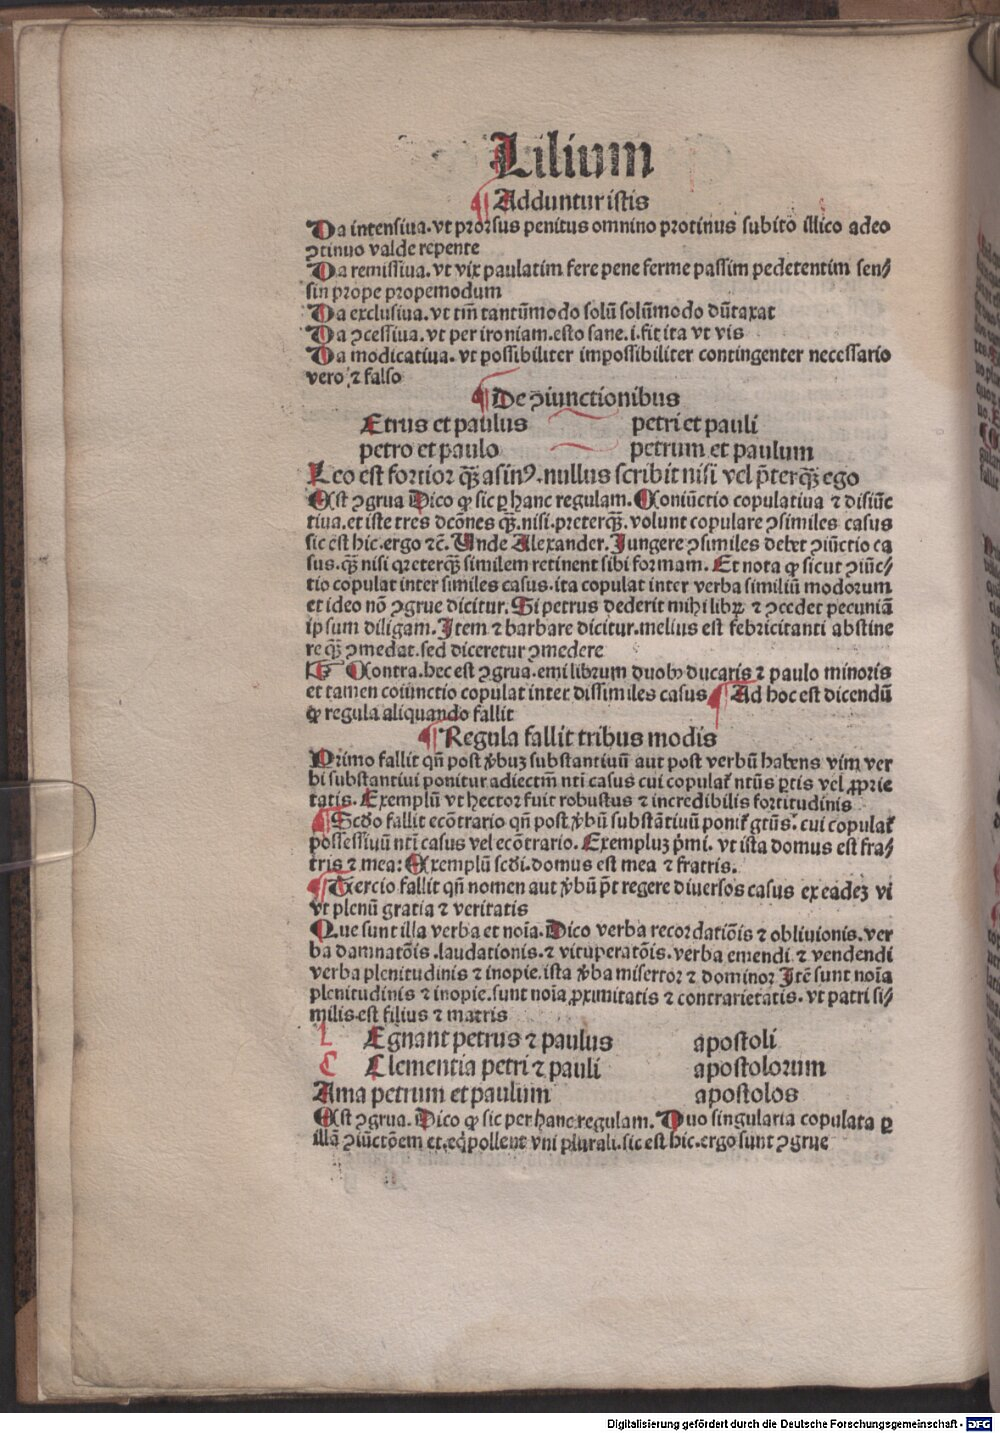 Lilium
¶ Adduntur istis
Da intensiua. vt prorsus penitus omnino protinus subito illico adeo
ꝯtinuo valde repente
Da remissiua. vt vix paulatim fere pene ferme passim pedetentim sen⸗
sin prope propemodum
Da exclusiua. vt tm̄ tantūmodo solū solūmodo dūtaxat
Da ꝯcessiua. vt per ironiam. esto sane. i. fit ita vt vis
Da modicatiua. vt possibiliter impossibiliter contingenter necessario
vero ⁊ falso
¶ De ꝯiunctionibus
Etrus et paulus petri et pauli
petro et paulo petrum et paulum
Leo est fortior qꝫ̄ asinꝰ. nullus scribit nisi vel p̄terqꝫ̄ ego
Est ꝯgrua Dico ꝙ sic ꝑ hanc regulam. Coniūctio copulatiua ⁊ disiūc
tiua. et iste tres dcōnes qꝫ̄. nisi. preterqꝫ̄. volunt copulare ꝯsimiles casus
sic est hic. ergo ⁊c̄. Unde Alexander. Jungere ꝯsimiles debet ꝯiūctio ca
sus. qꝫ̄ nisi preterqꝫ̄ similem retinent sibi formam. Et nota ꝙ sicut ꝯiūc⸗
tio copulat inter similes casus. ita copulat inter verba similiū modorum
et ideo nō ꝯgrue dicitur. Si petrus dederit mihi libꝝ ⁊ ꝯcedet pecuniā
ipsum diligam. Item ⁊ barbare dicitur. melius est febricitanti abstine
re qꝫ̄ ꝯmedat. sed diceretur ꝯmedere
¶ Contra. hec est ꝯgrua. emi librum duobꝫ ducatis ⁊ paulo minoris
et tamen coiunctio copulat inter dissimiles casus ¶ Ad hoc est dicendū
ꝙ regula aliquando fallit
¶ Regula fallit tribus modis
Primo fallit qn̄ post ꝟbuꝫ substantiuū aut post verbū habens vim ver
bi substantiui ponitur adiectm̄ nti casus cui copulat᷑ ntūs ꝑtis vel ꝓprie
tatis. Exemplū vt hector fuit robustus ⁊ incredibilis fortitudinis
¶ Scdo fallit ecōtrario qn̄ post ꝟbū substātiuū ponit᷑ gtūs. cui copulat᷑
possessiuū nti casus vel ecōtrario. Exempluꝫ p̄mi. vt ista domus est fra⸗
tris ⁊ mea: Exemplū scdi. domus est mea ⁊ fratris.
¶ Tercio fallit qn̄ nomen aut ꝟbū p̄t regere diuersos casus ex eadeꝫ vi
vt plenū gratia ⁊ veritatis
Que sunt illa verba et noīa. Dico verba recordatiōis ⁊ obliuionis. ver
ba damnatōis. laudationis. ⁊ vituperatōis. verba emendi ⁊ vendendi
verba plenitudinis ⁊ inopie. ista ꝟba misertor ⁊ dominor Itē sunt noīa
plenitudinis ⁊ inopie. sunt noīa ꝓximitatis ⁊ contrarietatis. vt patri si⸗
milis est filius ⁊ matris
Egnant petrus ⁊ paulus apostoli
Clementia petri ⁊ pauli apostolorum
Ama petrum et paulum apostolos
Est ꝯgrua. Dico ꝙ sic per hanc regulam. Duo singularia copulata ꝑ
illā ꝯiūctōem et. eq̇pollent vni plurali. sic est hic. ergo sunt ꝯgrue
Digitalisierung gefördert durch die Deutsche Forschungsgemeinschaft - DFG